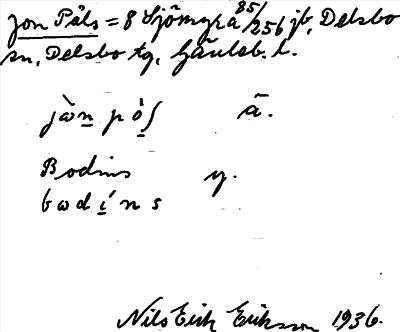 Jon Påls = 8 Sjömyra 85/256 jb, Delsbo
sn, Delsbo tg, Gävleb. l.
jὼn pòʃ ā.
Bodins y.
bωdíns
Nils Erik Eriksson 1936.